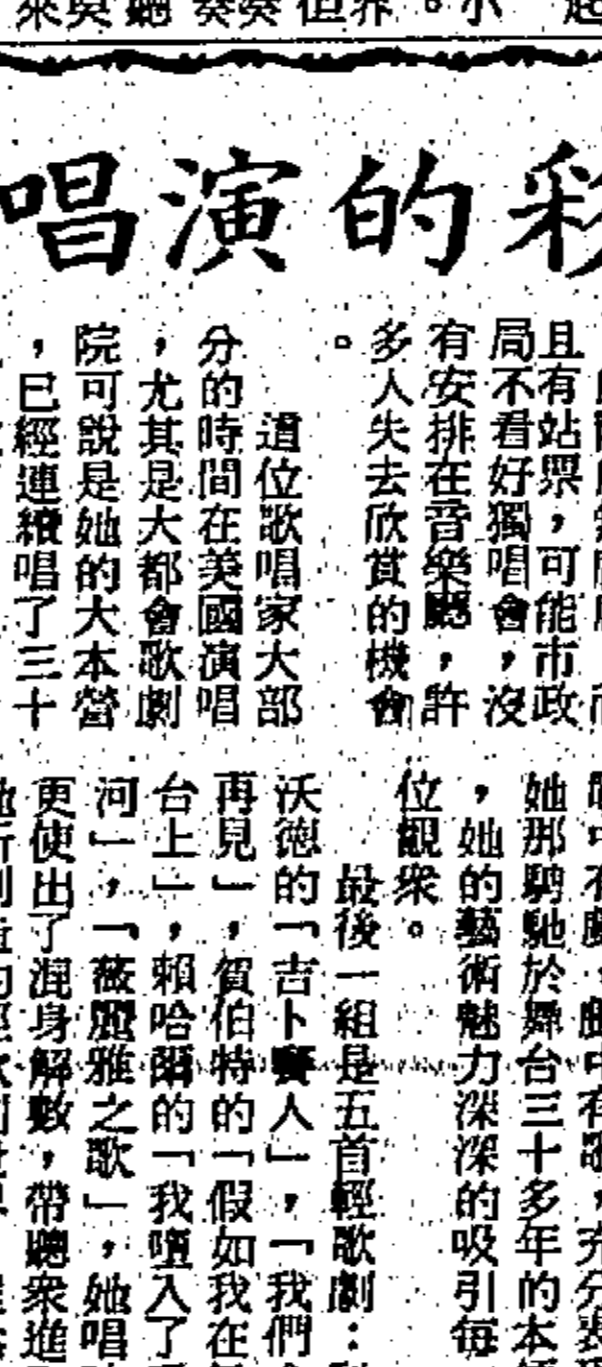 彩的演唱
且有站票，可能市政
局不看好獨唱會，沒
有安排在音樂廳，許
多人失去欣賞的機會
。
這位歌唱家大部
分的時間在美國演唱
，尤其是大都會歌劇
院可說是她的大本營
，已經連續唱了三十
她那騁馳於舞台三十多年的本
，她的藝術魅力深深的吸引每
位觀衆。
最後一組是五首輕歌劇：
沃德的「吉卜賽人」，「我們
再見」，賀伯特的「假如我在
台上」，賴哈爾的「我墮入了
河」，「薇麗雅之歌」，她唱
更使出了渾身解數，帶聽衆進